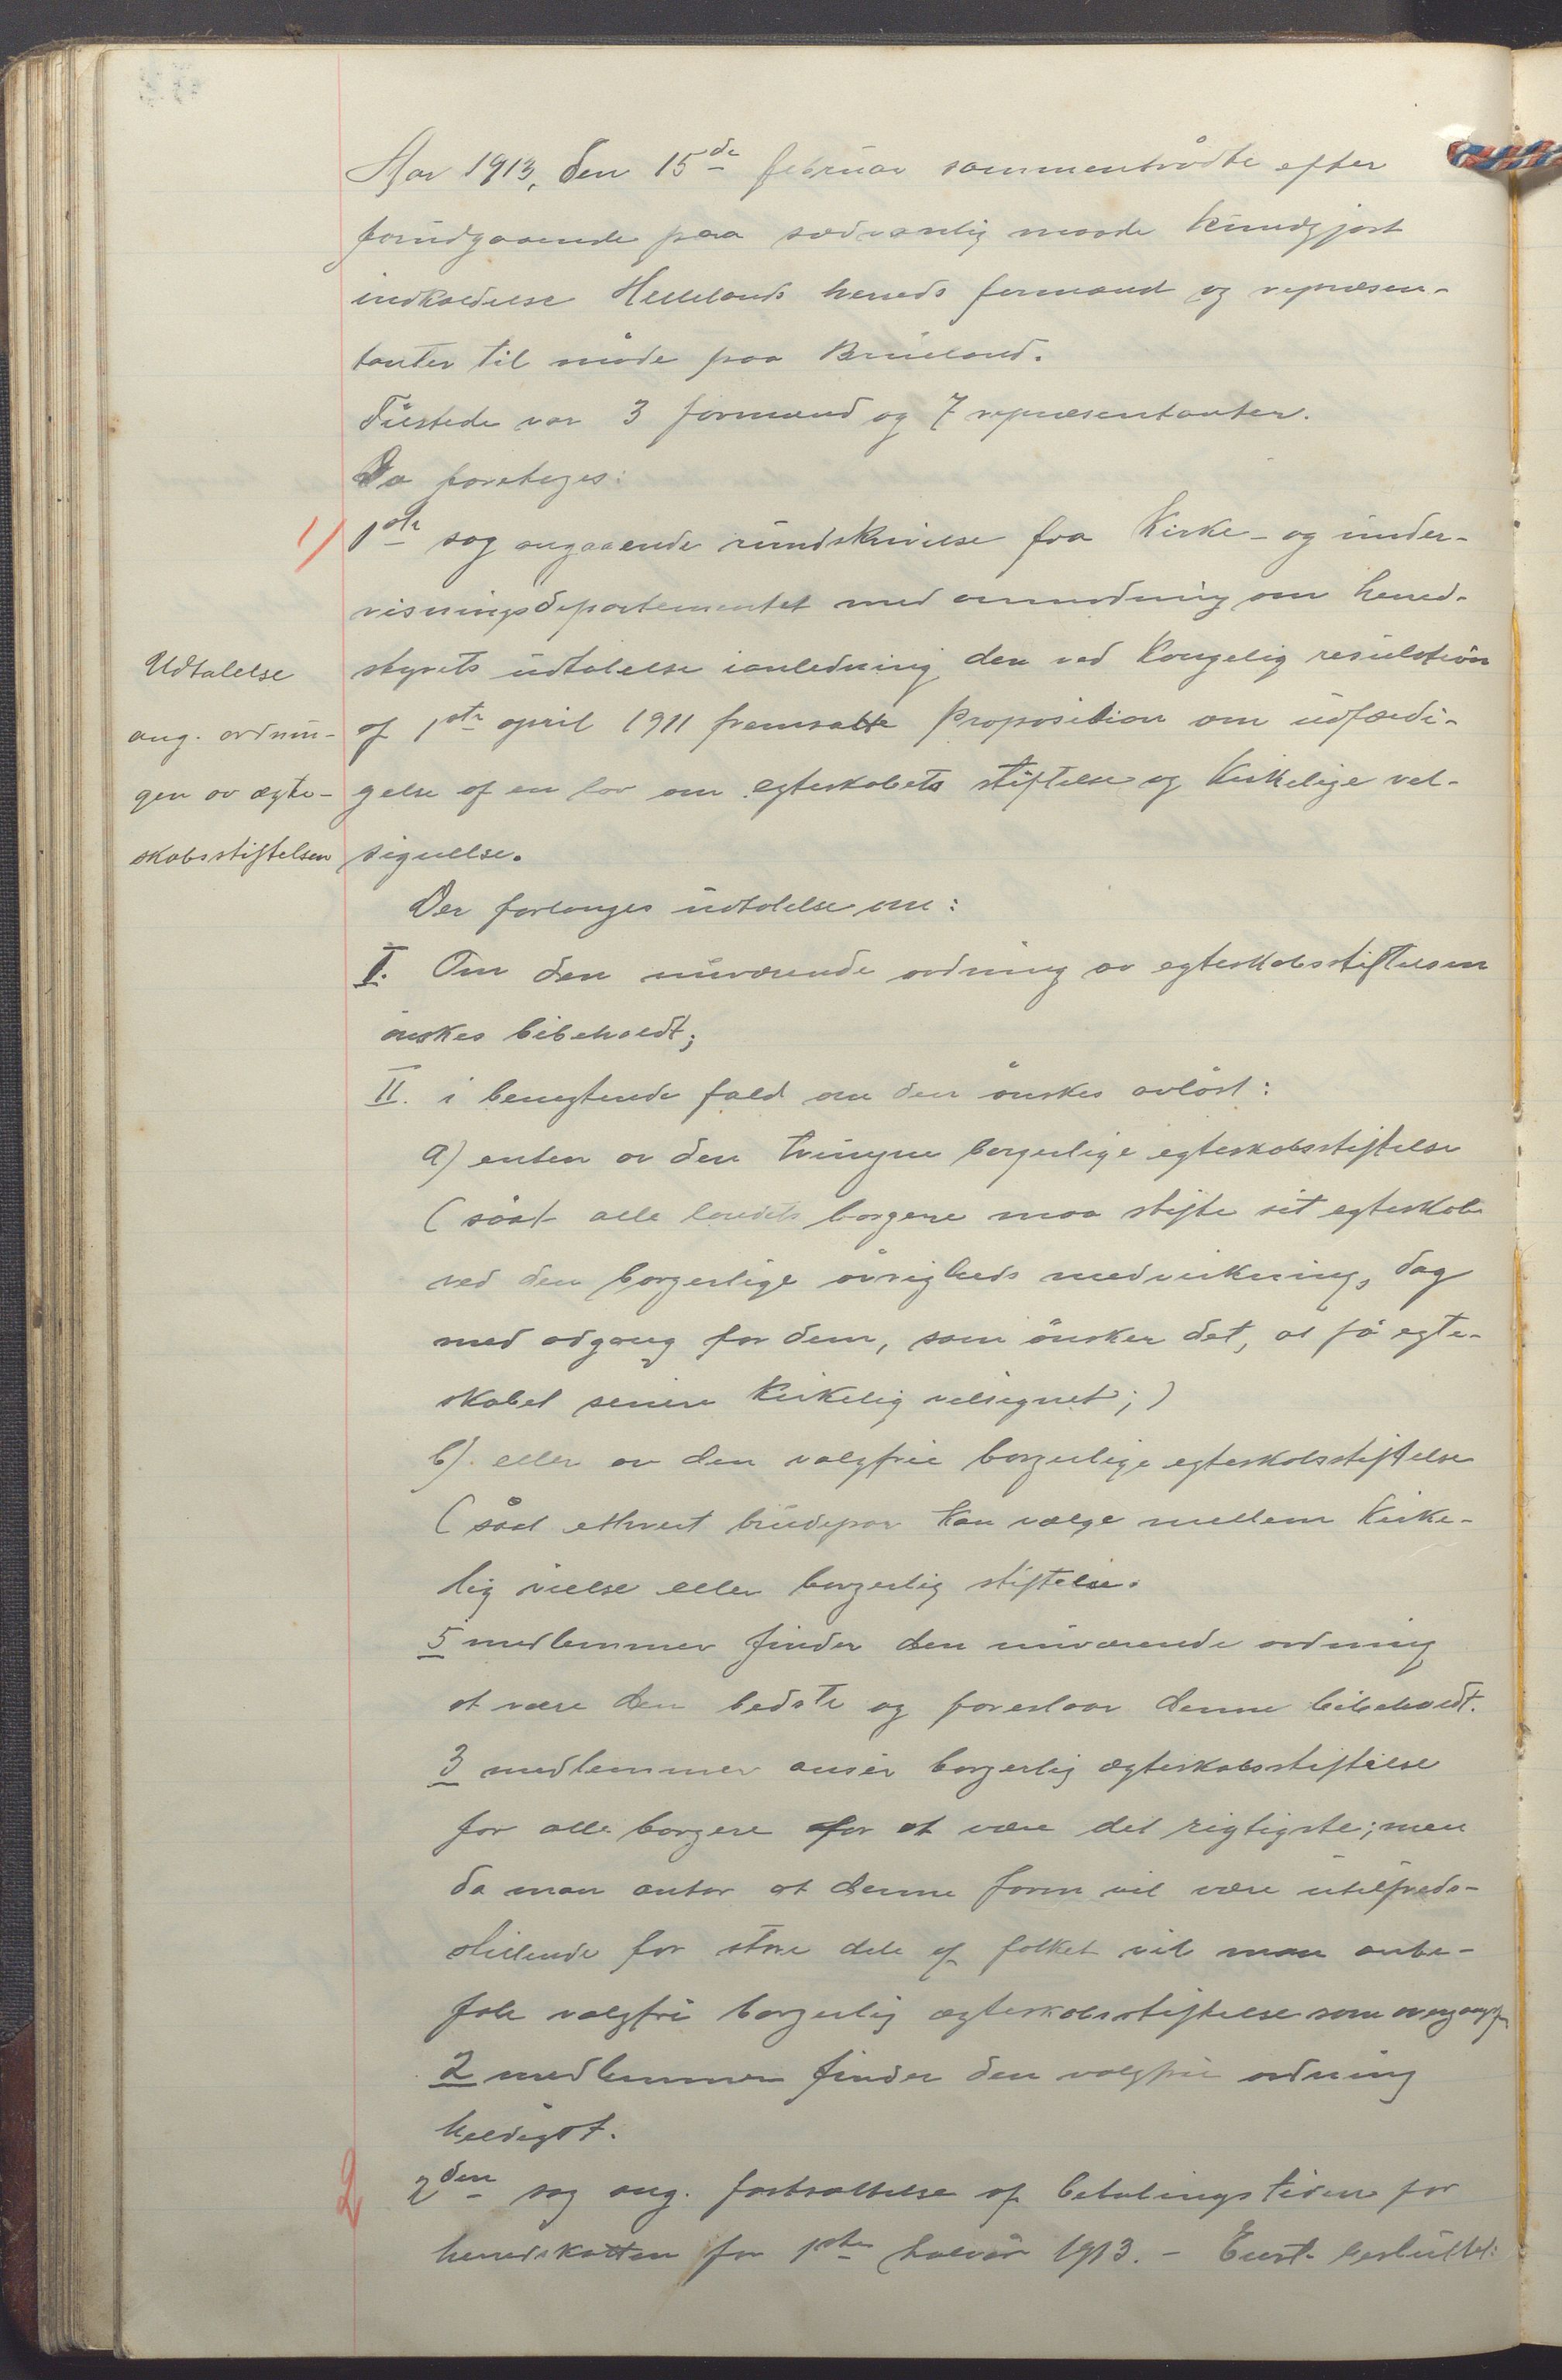 Aar 1913, den 15de februar sammentrådte efter
forudgaaende paa sedvanlig maade kundgjort
indkaldelse Hellelands herreds formænd og repræsen-
tanter til møde paa Brueland.
Tilstede var 3 formænd og 7 repræsentanter.
Da foretoges:
1) 1ste sag angaaende rundskrivelse fra Kirke- og under-
visningsdepartementet med anmodning om herred-
styrets udtalelse ianledning den ved kongelig resulotion
af 1ste april 1911 fremsatte Proposition om udfærdi-
gelse af en lov om egteskabets stiftelse og kirkelige vel-
signelse.
Udtalelse
ang. ordnin-
gen av ægte-
skabsstiftelsen
Der forlanges udtalelse om:
I. Om den nuværende ordning av egteskabsstiftelsen
ønskes bibeholdt;
II. i benegtende fald om den ønskes avløst:
a) enten av den tvungne borgerlige egteskabsstiftelse
(såat alle landets borgere maa stifte sit egteskab
ved den borgerlige øvrigheds medvirkning, dog
med adgang for dem, som ønsker det, at få egte-
skabet senere kirkelig velsignet;)
b). eller av den valgfrie borgerlige egteskabsstiftelse
(såat ethvert brudepar kan vælge mellem kirke-
lig vielse eller borgerlig stiftelse.
5 medlemmer finder den nuværende ordning
at være den bedste og foreslaar denne bibeholdt.
3 medlemmer anser borgerlig ægteskabsstiftelse
for alle borgere for at være det rigtigste; men
da man antar at denne form vil være utilfreds-
stillende for store dele af folket vil man anbe-
fale valgfri borgerlig ægteskabsstiftelse som
2 medlemmer finder den valgfrie ordning
heldigst.
2 2den sag ang. fastsættelse af betalingstiden for
herredskatten for 1ste halvår 1913. – Enst. besluttet: